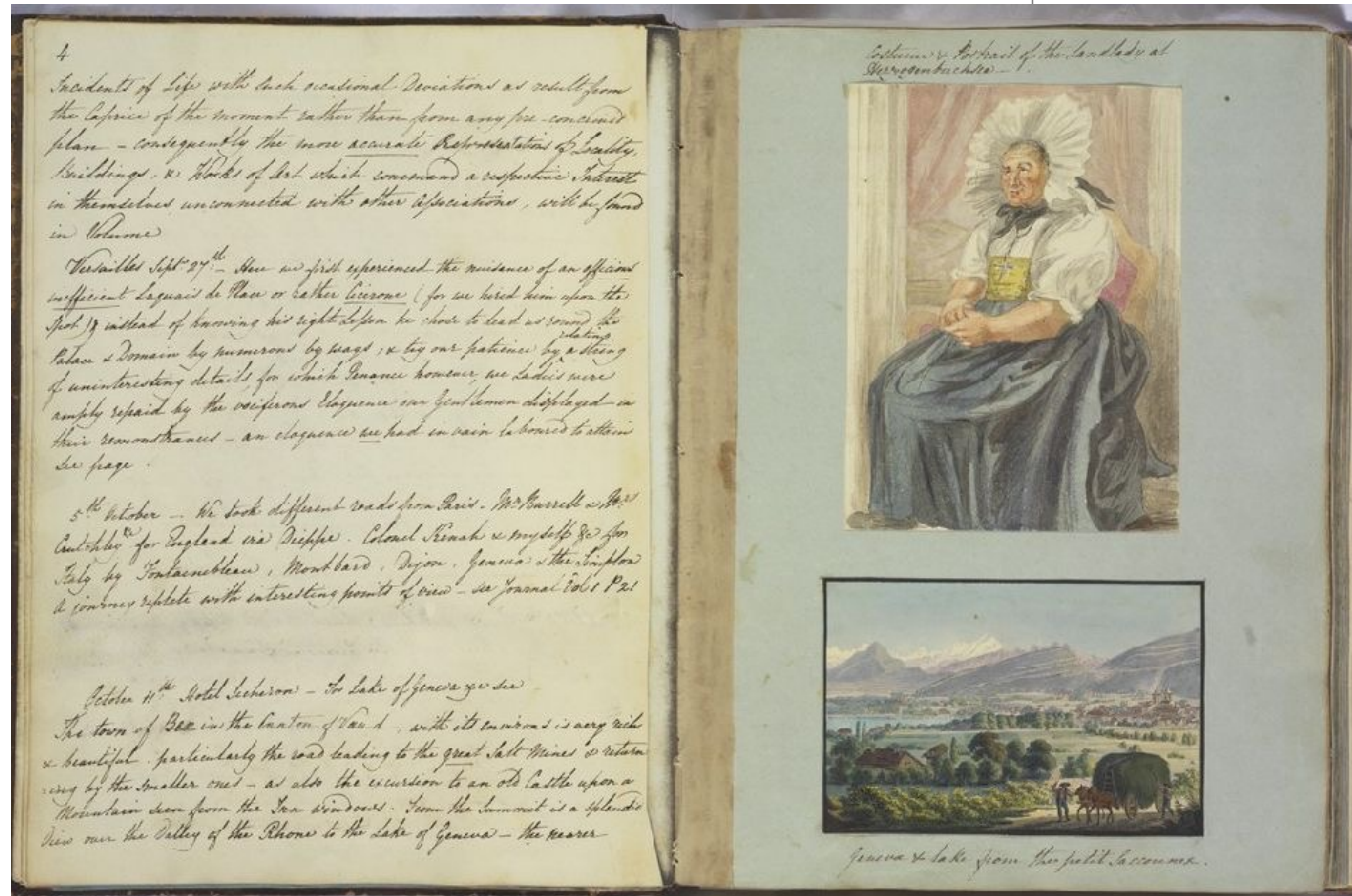 4
Incidents of Life with such occasional Deviations as result from
the Caprice of the moment rather than from any pre-concerned
plan - consequently the more accurate Representations of Locality,
Buildings - & Works of Art which command a respective Interest
in themselves unconnected with other associations, will be found
in Volume
Versailles Sept 27th - Here we first experienced the nuisance of an officious
inefficient Laquais de Place or rather Cicerone (for we hired him upon the
Spot) instead of knowing his right Lesson he chose to lead us round the
Palace & Domain by numerous by ways, & try our patience by relating a string
of uninteresting details, for which Penance however we Ladies were
amply repaid by the vociferous Eloquence our Gentlemen displayed in
their remonstrances - an eloquence we had in vain laboured to attain
see page .
5th October - We took different roads from Paris - Mr Burrell & Mrs
for England via Dieppe. Colonel Kenah & myself &c for
Italy by Fontainebleau, Montbard, Dijon, Geneva & the Simplon
A journey replete with interesting points of view - see Journal Vol 1 P 21
October 11th Hotel Secheron - For Lake of Geneva &c see
The town of Bex in the Canton of Vaud, with its environs is very rich
& beautiful, particularly the road leading to the great Salt Mines & return
-ing by the smaller ones - as also the excursion to an old Castle upon a
Mountain seen from the Inn windows. From the Summit is a splendid
View over the Valley of the Rhone to the Lake of Geneva - the nearer
Costume & Portrait of the Landlady at
Herzogenbuchsee -
Geneva & Lake from the petit Saconnex.